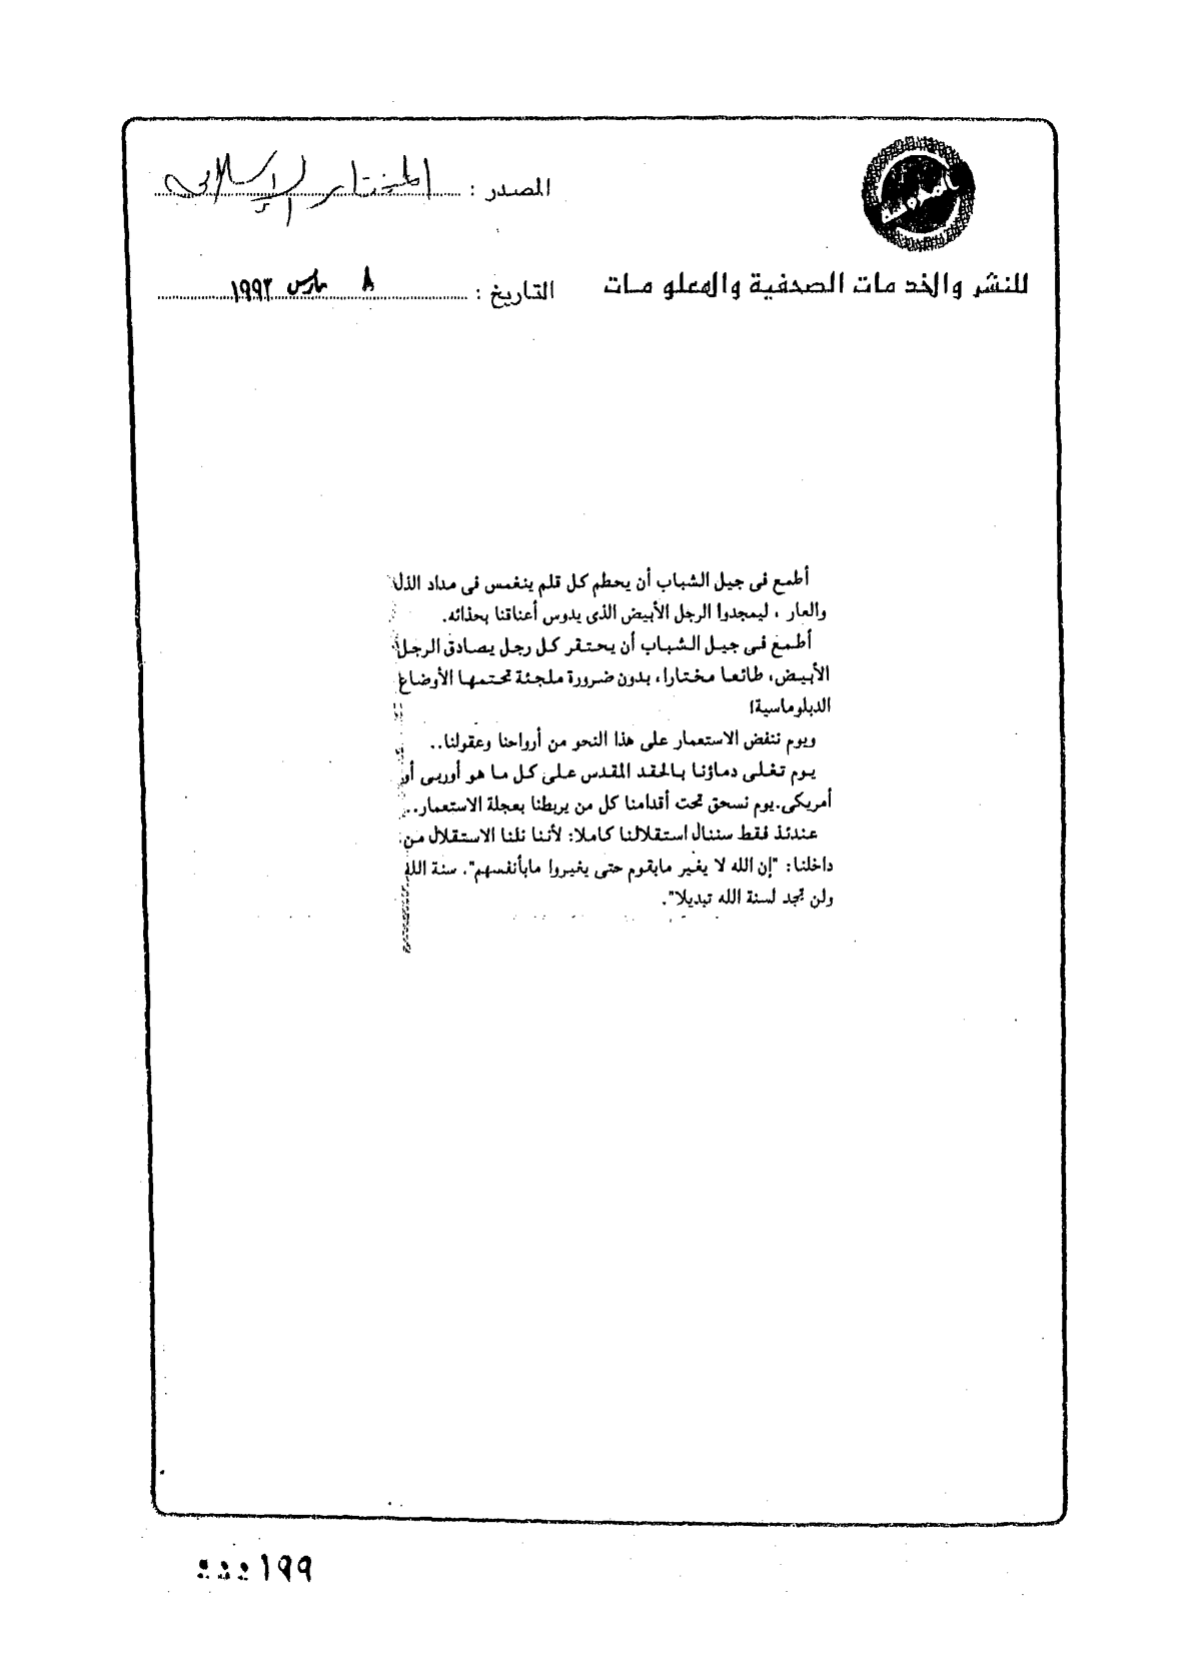 المصدر : المختار الإسلامى
للنشر والخدمات الصحفية والمعلومات
التاريخ : ٨ مارس ١٩٩٢
أطمع فى جيل الشباب أن يحطم كل قلم ينغمس فى مداد الذل
والعار ، ليمجدوا الرجل الأبيض الذى يدوس أعناقنا بحذائه.
أطمع فى جيل الشباب أن يحتقر كل رجل يصادق الرجل
الأبيض، طائعا مختارا، بدون ضرورة ملجئة تحتمها الأوضاع
الدبلوماسية!
ويوم ننفض الاستعمار على هذا النحو من أرواحنا وعقولنا..
يوم تغلى دماؤنا بالحقد المقدس على كل ما هو أوربى أو
أمريكى.يوم نسحق تحت أقدامنا كل من يربطنا بعجلة الاستعمار..
عندئذ فقط سننال استقلالنا كاملا: لأننا نلنا الاستقلال من
داخلنا: "إن الله لا يغير مابقوم حتى يغيروا مابأنفسهم". سنة الله
ولن تجد لسنة الله تبديلا".
١٩٩